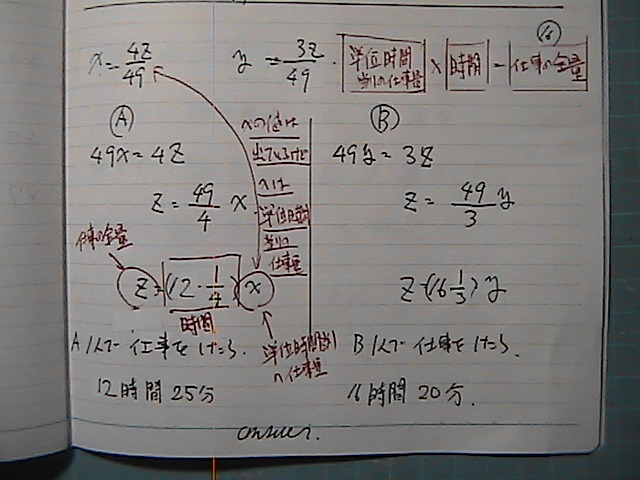 x = 4z/49 y = 3z/49 · 単位時間当りの仕事量 × 時間 = 仕事の全量
Ⓐ Ⓑ
49x = 4z
z = 49/4 x
仕事の全量
z = (12·1/4) x
時間
A 1人で仕事をしたら、
12時間25分
xは
単位時間
当りの
仕事量
単位時間当り
仕事量
49y = 3z
z = 49/3 y
z = (16 1/3) y
B 1人で仕事をしたら、
16時間20分.
answer.